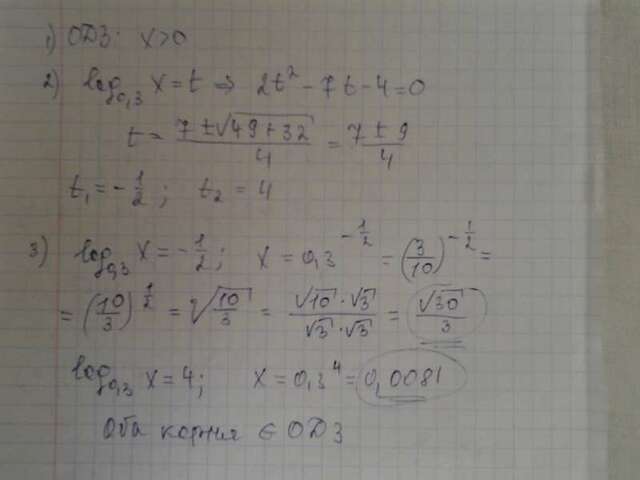 1) ОДЗ: x>0
2) log₀,₃ x = t ⇒ 2t² - 7t - 4 = 0
t = (7 ± √(49 + 32))/4 = (7 ± 9)/4
t₁ = -1/2 ; t₂ = 4
3) log₀,₃ x = -1/2 ; x = 0,3^(-1/2) = (3/10)^(-1/2) =
= (10/3)^(1/2) = √(10/3) = (√10 · √3)/(√3 · √3) = √30/3
log₀,₃ x = 4 ; x = 0,3⁴ = 0,0081
Оба корня ∈ ОДЗ